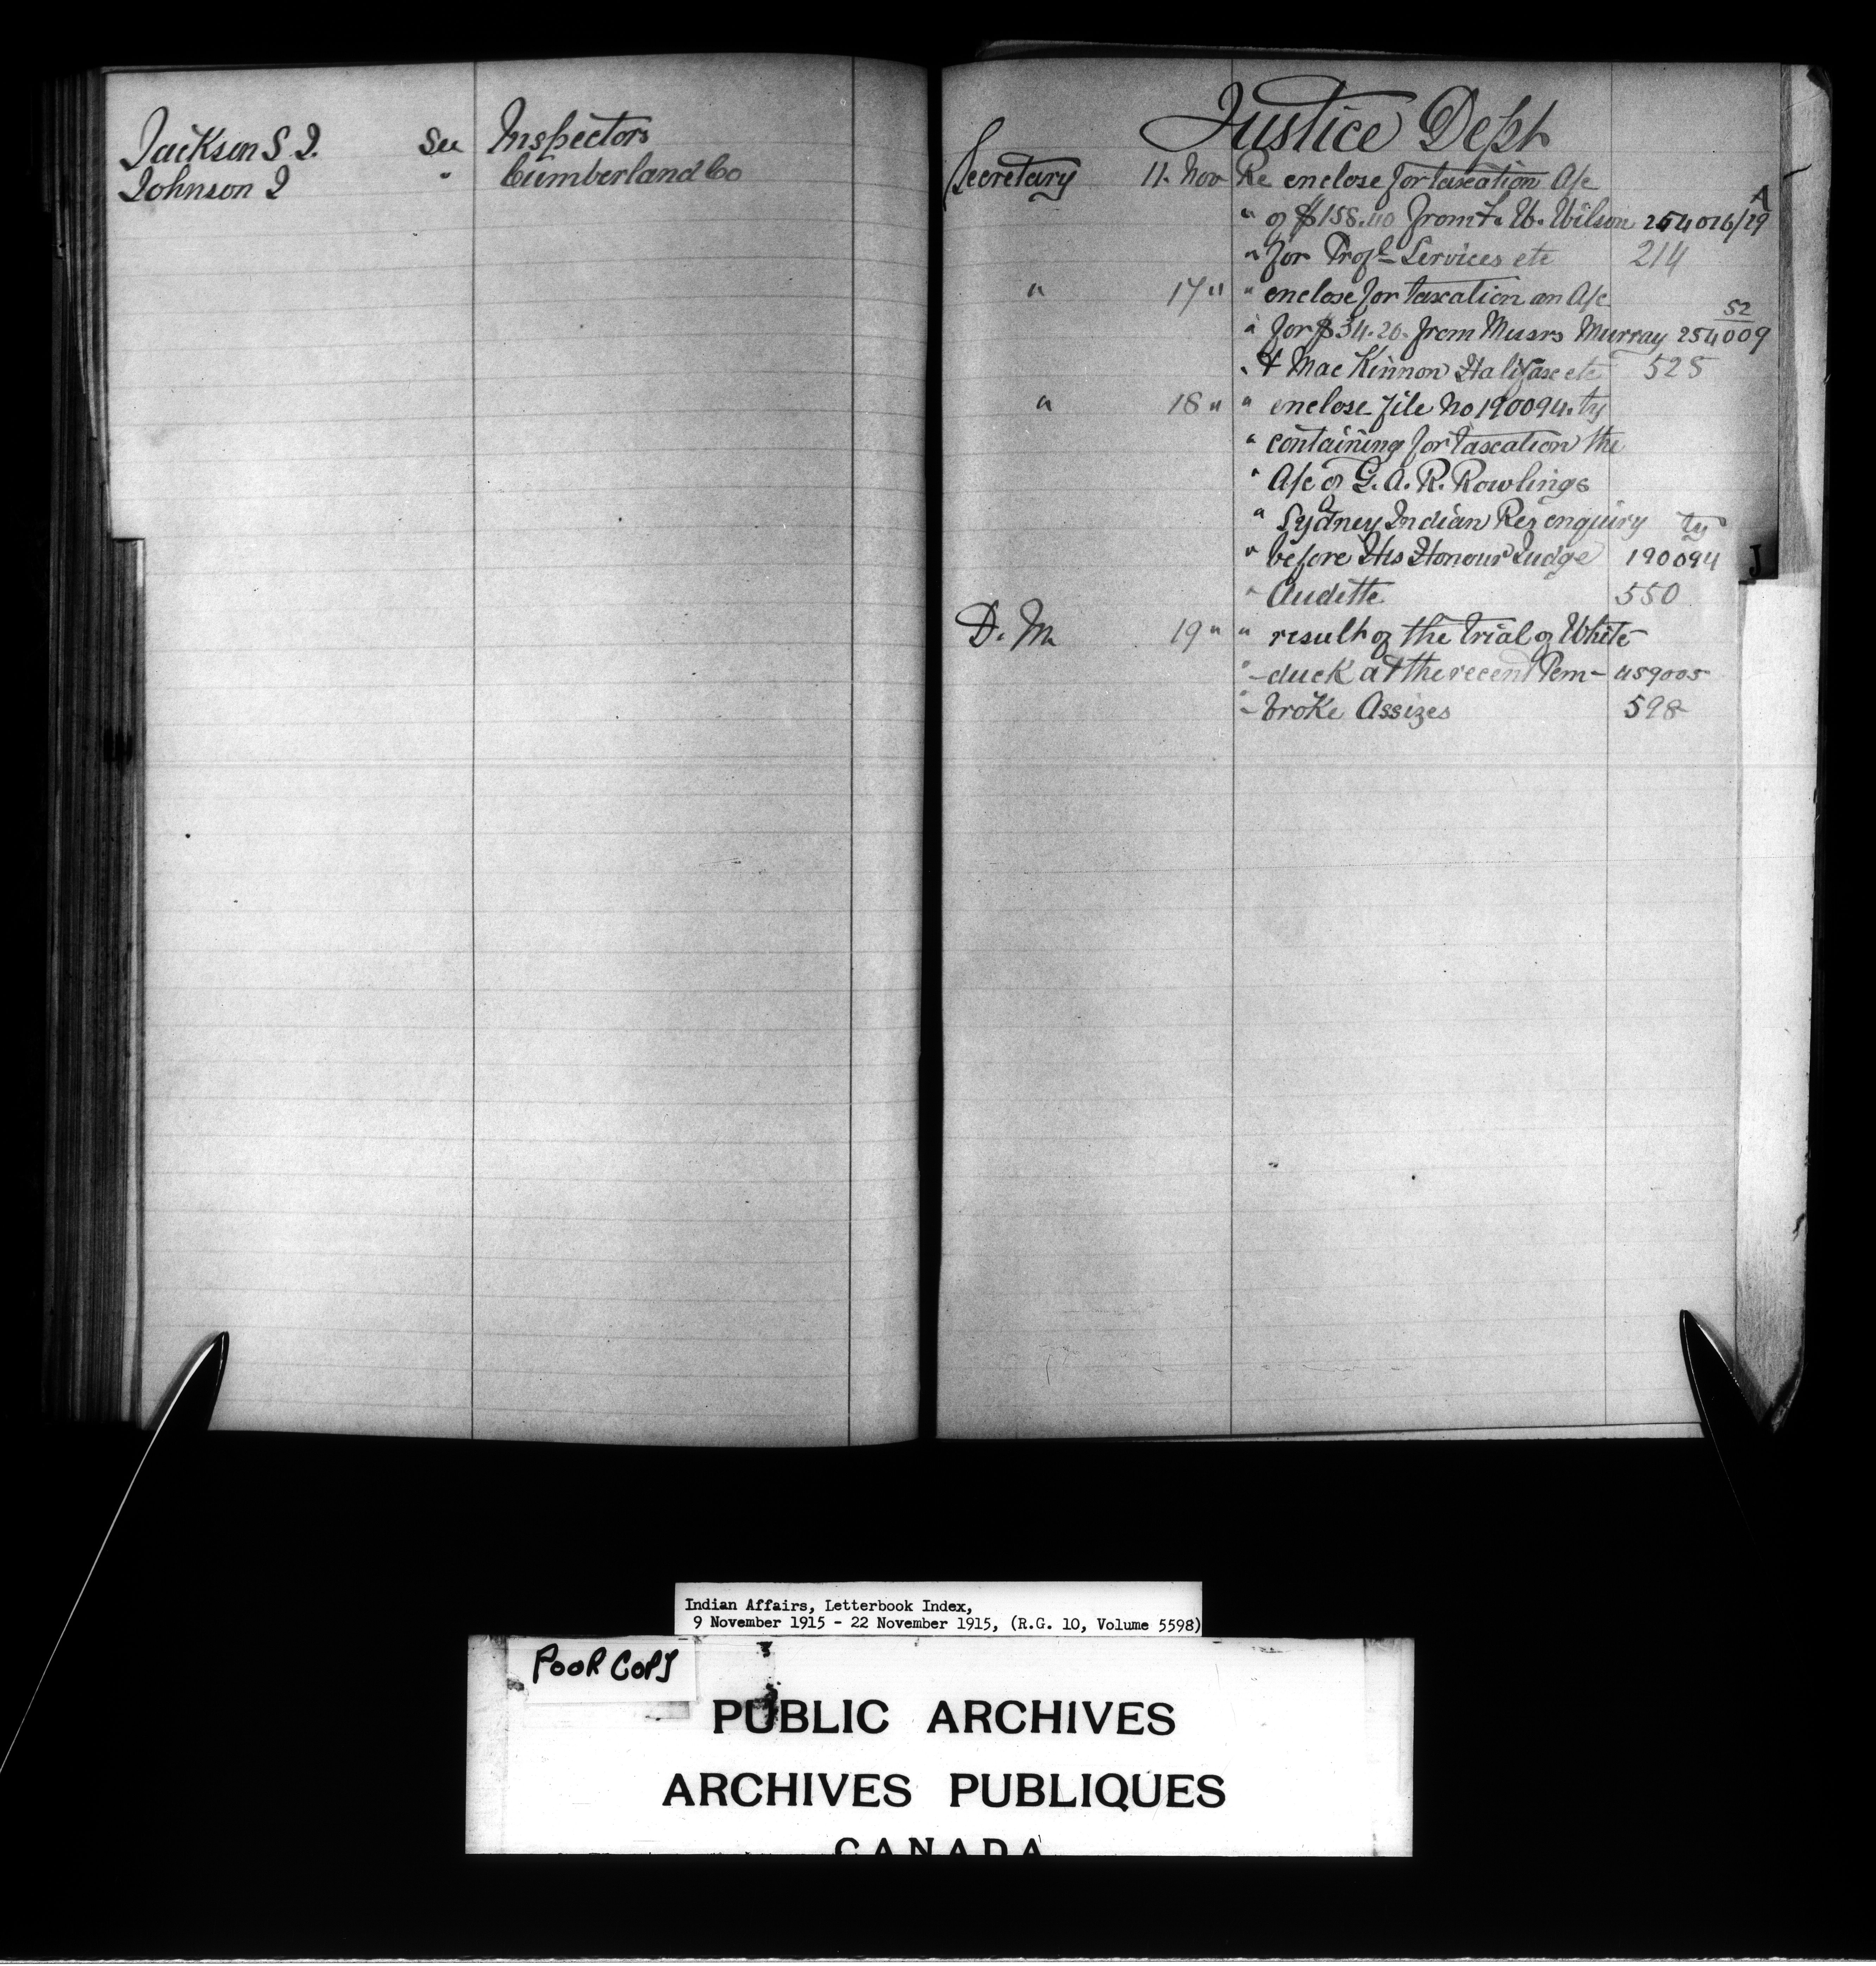 Jackson S J. See Inspectors
Johnson J " Cumberland Co
Justice Dept
Secretary 11. Nov Re enclose for taxation A/c
" of $158.40 from F. W. Wilson 254016/29 A
" for Profl Services etc 214
" 17 " " enclose for taxation an A/c
" for $34.20. from Messrs Murray 254009 52
" & MacKinnon Halifax etc 525
" 18 " " enclose file No 190094. ty
" containing for taxation the
" A/c of G. A. R. Rowlings
" Sydney Indian Res enquiry ty
" before His Honour Judge 190094
" Audette 550
D. M 19 " " result of the trial of White-
" -duck at the recent Pem- 459005
" -broke Assizes 598
J
Indian Affairs, Letterbook Index,
9 November 1915 - 22 November 1915, (R.G. 10, Volume 5598)
POOR COPY
PUBLIC ARCHIVES
ARCHIVES PUBLIQUES
CANADA